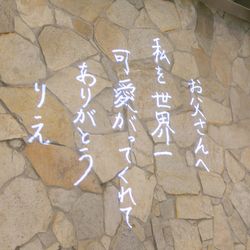 お父さんへ
私を世界一
可愛がってくれて
ありがとう
りえ